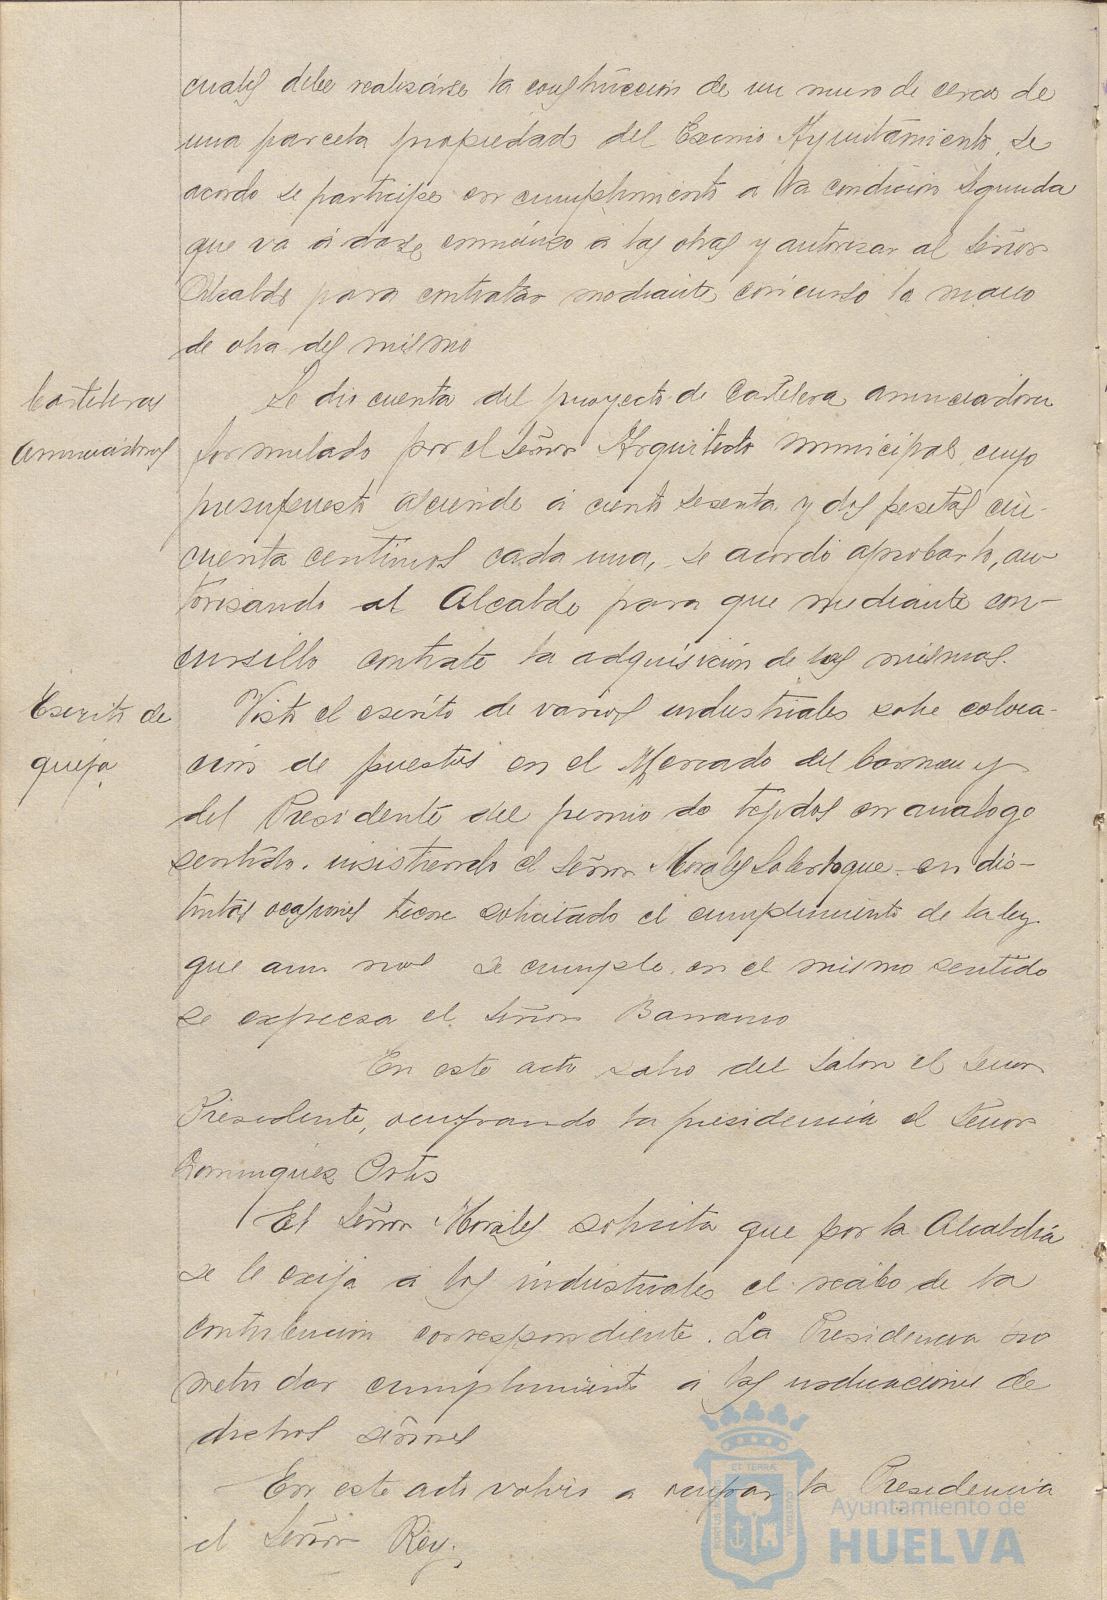 cuales debe realizarse la construccion de un muro de cerca de
una parcela propiedad del Excmo Ayuntamiento, se
acordó se participe en cumplimiento a la condición segunda
que va á darse comienzo a las obras y autorizar al Señor
Alcalde para contratar mediante concurso la mano
de obra del mismo
Carteleras
anunciadoras
Se dio cuenta del proyecto de cartelera anunciadora
formulado por el Señor Arquitecto municipal cuyo
presupuesto asciende á ciento sesenta y dos pesetas cin-
cuenta centimos cada una, se acordó aprobarlo, au-
torizando al Alcalde para que mediante con-
cursillo contrate la adquisición de las mismas.
Escrito de
queja
Visto el escrito de varios industriales sobre coloca-
cion de puestos en el Mercado del Carmen y
del Presidente del gremio de tejidos en analogo
sentido, insistiendo el Señor Morales que en dis-
tintas ocasiones tiene solicitado el cumplimiento de la ley
que aun no se cumple, en el mismo sentido
se expresa el Señor Barranco
En este acto salio del Salon el Señor
Presidente, ocupando la presidencia el Señor
Dominguez Ortiz
El Señor Morales solicita que por la Alcaldia
se le exija a los industriales el recibo de la
contribucion correspondiente. La Presidencia pro
mete dar cumplimiento a las indicaciones de
dichos señores
En este acto volvio a ocupar la Presidencia
el Señor Rey.
Ayuntamiento de
HUELVA